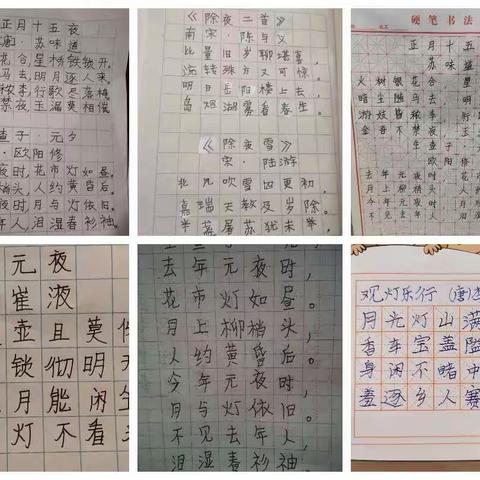 正月十五夜
·苏味道
花合,星桥铁锁开。
马去,明月逐人来。
秾李,行歌尽落梅。
禁夜,玉漏莫相催。
查子·元夕
·欧阳修
夜时,花市灯如昼。
梢头,人约黄昏后。
夜时,月与灯依旧。
年人,泪湿春衫袖。
《除夜二首》
南宋·陈与义
比量旧岁聊堪喜,
流转殊方又可惊
明日岳阳楼上去
岛烟湖雾看春生。
《除夜雪》
宋·陆游
北风吹雪四更初,
嘉瑞天教及岁除
半盏屠苏犹未举
硬笔书法
正月十五
苏味道
火树银花合,星
暗尘随马去,明
游妓皆秾李,行
金吾不禁夜,玉
生查子
欧阳修
去年元夜时,花
月上柳梢头,人
今年元夜时,月
不见去年人,泪
元夜
崔液
壶且莫
锁彻明
月能闲
灯不看
去年元夜时,
花市灯如昼。
月上柳梢头,
人约黄昏后。
今年元夜时,
月与灯依旧。
不见去年人,
泪湿春衫袖。
观灯乐行 (唐)
月光灯山满
香车宝盖隘
身闲不睹中
羞逐乡人赛